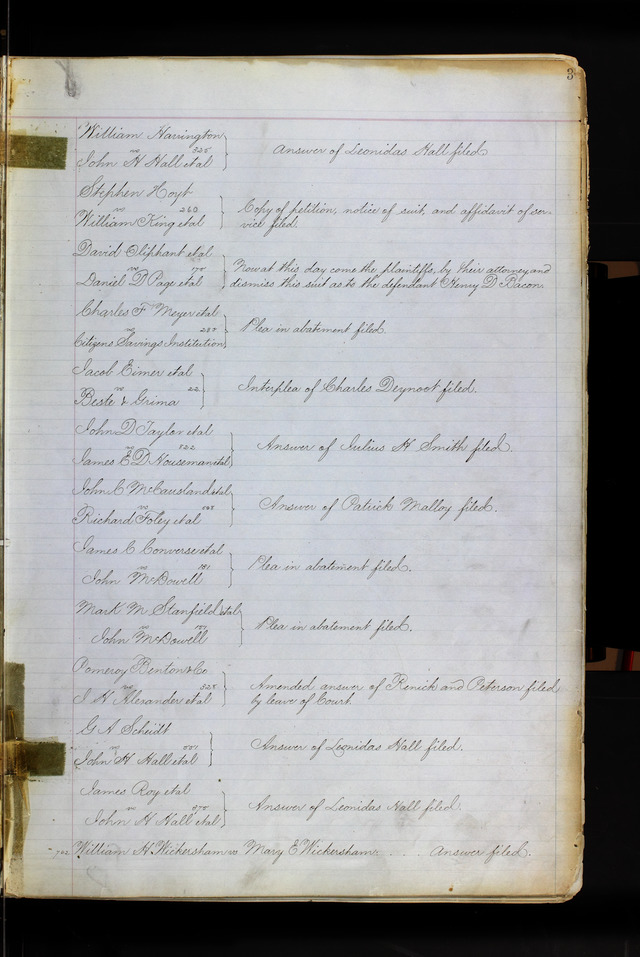 3
William Harrington
vs 325
John H Hall et al
Answer of Leonidas Hall filed
Stephen Hoyt
vs 260
William King et al
Copy of petition, notice of suit, and affidavit of ser-
vice filed.
David Oliphant et al
vs
Daniel D Page et al
Now at this day come the plaintiffs, by their attorney and
dismiss this suit as to the defendant Henry D Bacon.
Charles F Meyer et al
vs 287
Citizens Savings Institution
Plea in abatement filed.
Jacob Eimer et al
vs 22
Beste & Grima
Interplea of Charles Deynoot filed.
John D Taylor et al
vs 322
James E D Houseman et al
Answer of Julius H Smith filed.
John C McCausland et al
vs
Richard Foley et al
Answer of Patrick Malloy filed.
James C Converse et al
vs 181
John McDowell
Plea in abatement filed.
Mark M Stanfield et al
vs
John McDowell
Plea in abatement filed.
Pomeroy Benton & Co
vs 325
J H Alexander et al
Amended answer of Renick and Peterson filed
by leave of Court.
G A Scheidt
vs
John H Hall et al
Answer of Leonidas Hall filed.
James Roy et al
vs 375
John H Hall et al
Answer of Leonidas Hall filed.
702 William H Wickersham vs Mary E Wickersham . . . . Answer filed.